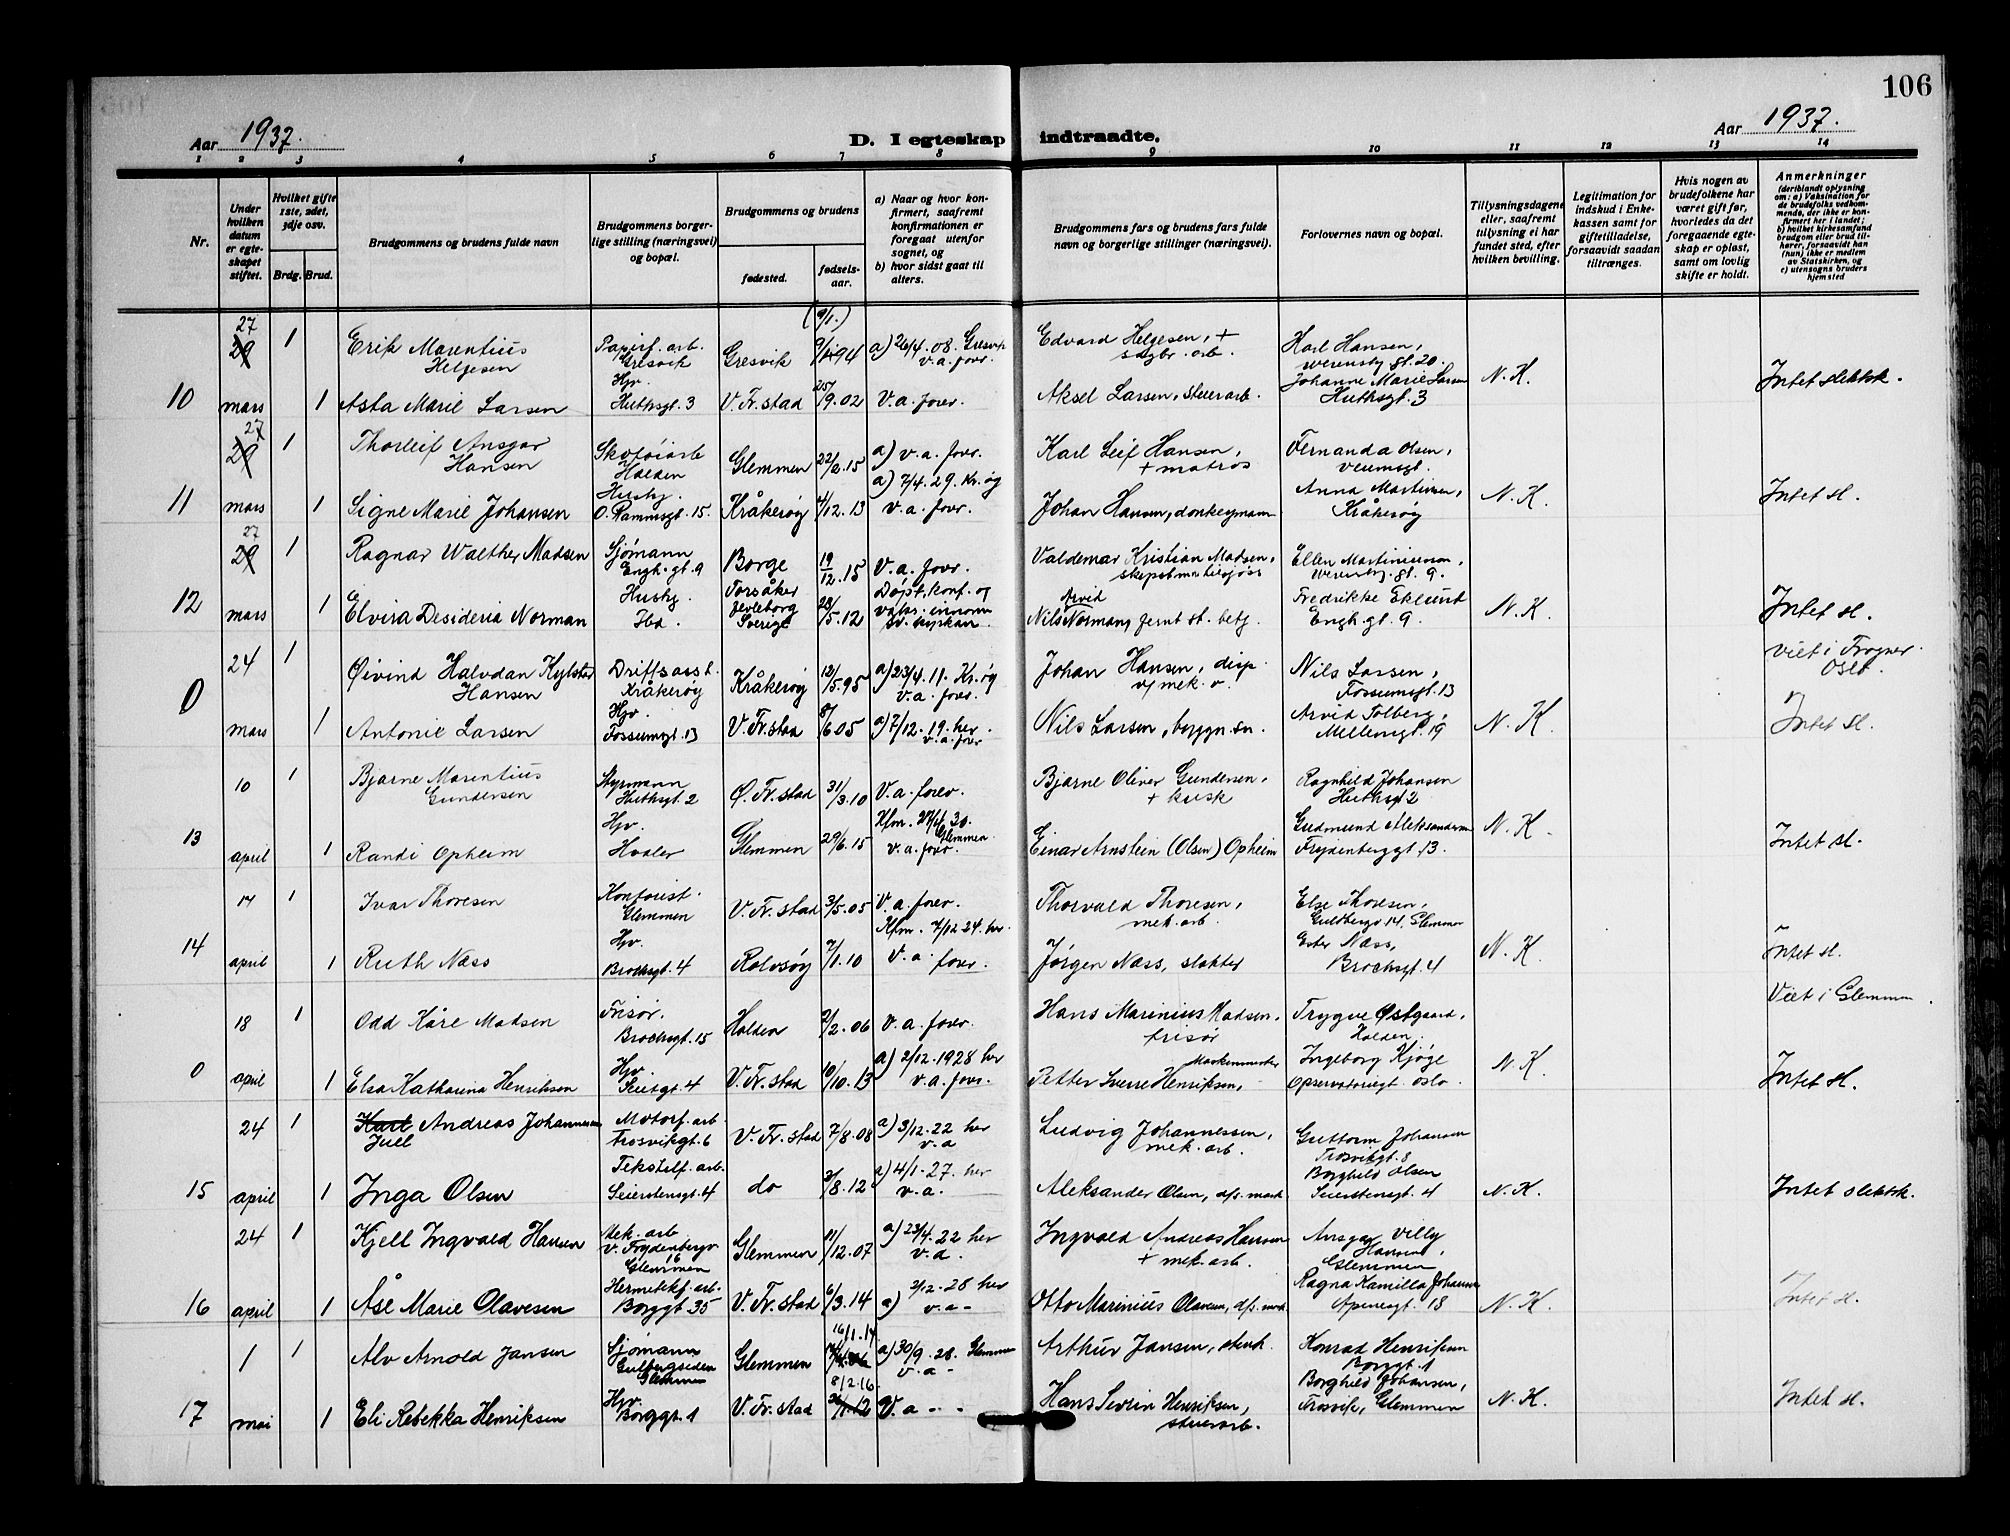 106
Aar 1937.
D. I egteskap indtraadte.
Aar 1937.
1 2 3 4 5 6 7 8 9 10 11 12 13 14
Nr.
Under hvilken datum er egteskapet stiftet.
Hvilket gifte 1ste, 2det, 3dje osv.
Brdg. Brud.
Brudgommens og brudens fulde navn
Brudgommens borgerlige stilling (næringsvei) og bopæl.
Brudgommens og brudens
fødested.
fødselsaar.
a) Naar og hvor konfirmert, saafremt konfirmationen er foregaat utenfor sognet, og
b) hvor sidst gaat til alters.
Brudgommens fars og brudens fars fulde navn og borgerlige stillinger (næringsvei).
Forlovernes navn og bopæl.
Tillysningsdagene eller, saafremt tillysning ei har fundet sted, efter hvilken bevilling.
Legitimation for indskud i Enkekassen samt for giftetilladelse, forsaavidt saadan tiltrænges.
Hvis nogen av brudefolkene har været gift før, hvorledes da det foregaaende egteskap er opløst, samt om lovlig skifte er holdt.
Anmerkninger
(deriblandt oplysning om: a) Vaksination for de brudefolks vedkommende, der ikke er konfirmert her i landet; b) hvilket kirkesamfund brudgom eller brud tilhører, forsaavidt han (hun) ikke er medlem av Statskirken, og c) utensogns bruders hjemsted
(9/1.)
27 29 1 Erik Marentius Helgesen Papirf. arb. Gresvik Gresvik 94 a) 26/4.08. Gresvik v.a. forr. Edvard Helgesen, + sagbr. arb. Karl Hansen, Werensby gt. 20.
10 mars 1 Asta Marie Larsen Hjv. Huthsgt. 3 V. Fr.stad 25/9.02 V.a. forr. Aksel Larsen, steinarb. Johanne Marie Larsen Huthsgt. 3 N.K. Intet slektsk.
27 29 1 Thorleif Ansgar Hansen Skotøiarb Halden Glemmen 22/2.15 a) v.a. forr. Karl Leif Hansen, + matros Fernanda Olsen, Veumsgt.
11 mars 1 Signe Marie Johansen Hushj. O. Rammsgt. 15. Kråkerøy 4/12.13 a) 7/4.29. Kr.øy v.a. forr. Johan Hansen, donkeymann Anna Martinsen, Kråkerøy N.K. Intet sl.
27 29 1 Ragnar Walther Madsen Sjømann Engh.gt. 9 Borge 19/12.15 V.a. forr. Valdemar Kristian Madsen, Ellen Martiniussen, Werensby. gt. 9.
12 mars 1 Elvira Desideria Norman Hushj. Ibd. Torsåker Jevleborg Sverige 28/5.12 Døpt, konf. og vaks. innom sv. kyrkan. Nils Arvid Norman, jernt. st. betj. Fredrikke Eklund Engh.gt. 9. N.K. Intet sl.
24 1 Øivind Halvdan Kylstad Hansen Driftsasst. Kråkerøy Kråkerøy 12/5.95 a) 23/4.11. Kr.øy v.a. forr. Johan Hansen, disp. v/ mek. v. Nils Larsen, Fossumsgt. 13 Viet i Frogner Oslo.
0 mars 1 Antonie Larsen Hjv. Fossumsgt. 13 V. Fr.stad 8/6 05 a) 7/12.19. her. v.a. forr Nils Larsen, byggm. sn. Arvid Tolberg, Mellemgt. 19 N.K. Intet sl.
10 1 Bjarne Marentius Gundersen Styrmann Huthsgt. 2 Ø. Fr.stad 31/3.10 V.a. forr. Bjarne Oliver Gundersen, + kusk Ragnhild Johansen Huthsgt 2
13 april 1 Randi Opheim Hjv. Hvaler Glemmen 29/6.15 Kfm. 27/4 30. Glemmen v.a. forr. Einar Arnstein (Olsen) Opheim Gudmund Aleksandersen Frydenberggt. 13. N.K. Intet sl.
17 1 Ivar Thoresen Kontorist. Glemmen V. Fr. stad 3/5.05 V.a. forr. Thorvald Thoresen, mek. arb. Else Thoresen, Guldbergv 14, Glemmen
14 april 1 Ruth Næss Hjv. Brochsgt. 4 Rolvsøy 7/1.10 Kfm. 7/12 24. her. V.a. forr. Jørgen Næss, slakter Ester Næss, Brochsgt. 4 N.K. Intet sl.
18 1 Odd Kåre Madsen Frisør. Brochsgt. 15 Halden 2/2.06 V.a. forr. Hans Marinius Madsen, frisør Trygve Østgaard, Halden. Viet i Glemmen
0 april 1 Elsa Katharina Henriksen Hjv. Seiegt. 4 V. Fr.stad 10/10.13 a) 2/12.1928 her v.a. forr. Petter Sverre Henriksen, Maskinmester Ingeborg Kjøge Opservatorigt. Oslo. N.K. Intet sl.
24 1 Karl Juell Andreas Johannessen Motorf. arb. Trosvikgt. 6 V. Fr.stad 7/8.08 a) 3/12.22 her v.a Ludvig Johannessen, mek. arb. Guttorm Johansen Trosvikgt. 8
15 april 1 Inga Olsen Tekstilf. arb. Seierstensgt. 4 do 3/8.12 a) 4/1.27. her v.a. Aleksander Olsen, d/s. mask. Borghild Olsen Seierstensgt. 4 N.K. Intet slektsk.
24 1 Kjell Ingvald Hansen Mek. arb V. Frydenbergv 16 Glemmen Glemmen 11/12.07 a) 23/4.22 her v.a. Ingvald Andreas Hansen + mek. arb. Ansgar Villy Hansen, Glemmen
16 april 1 Åse Marie Olavesen Hermetikf. arb. Borggt. 35 V. Fr.stad 6/3.14 a) 2/12.28 her v.a- Otto Marinius Olavesen, d/s. mask Ragna Kamilla Johansen Apenesgt. 18 N.K. Intet sl.
1 1 Alv Arnold Jansen Sjømann Gulbergsiden Glemmen Glemmen 16/1.14 a) 30/9.28. Glemmen v.a- Arthur Jansen, stenh. Konrad Henriksen Borggt. 1
17 mai 1 Eli Rebekka Henriksen Hjv. Borggt. 1 V. Fr.stad 8/2.16. V.a - - Hans Severin Henriksen, steinarb. Borghild Johansen, Trosvik, Glemmen N.K. Intet sl.